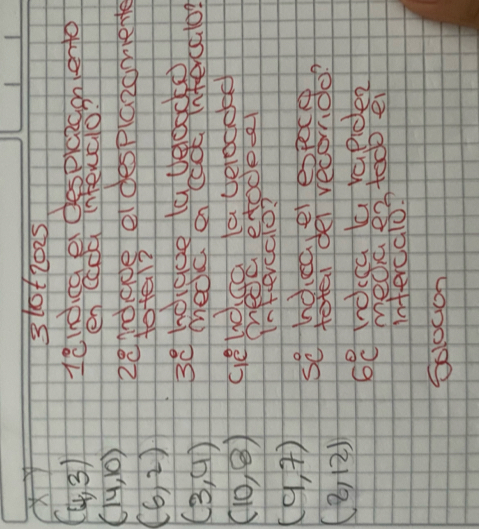 x y
(4,3)
(14,10)
(6,2)
(3,4)
(10,8)
(9,7)
(2,12)
3/01/2025
1º Indica el desplazamiento
en cada intervalo?
2º Indique el desplazamiento
total?
3º Indique la velocidad
media en cada intervalo?
4º Indica la velocidad
media
intervalo?
5º Indica el espacio
total del recorrido?
6º Indica la rapidez
media en todo el
intervalo?
Solucion